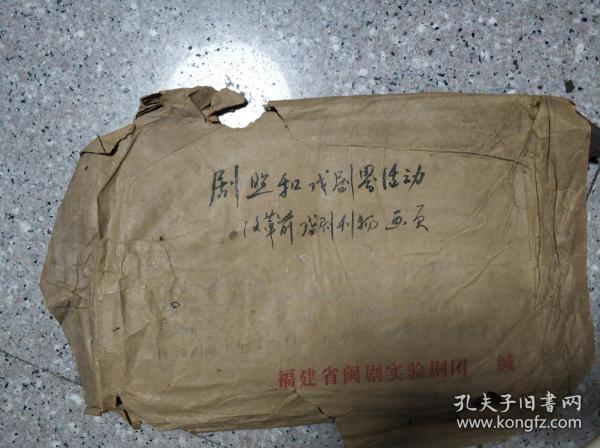 剧照和戏剧界活动
文革前戏剧刊物画页
福建省闽剧实验剧团 缄
孔夫子旧书网
www.kongfz.com